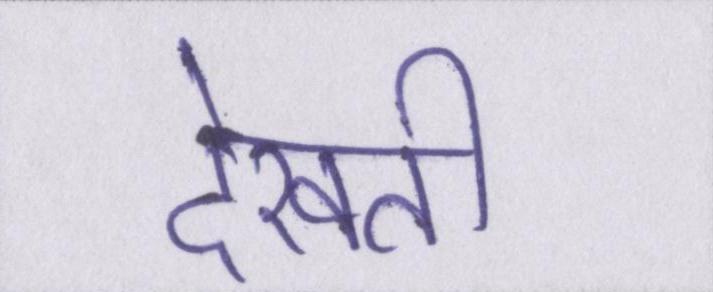 देखती